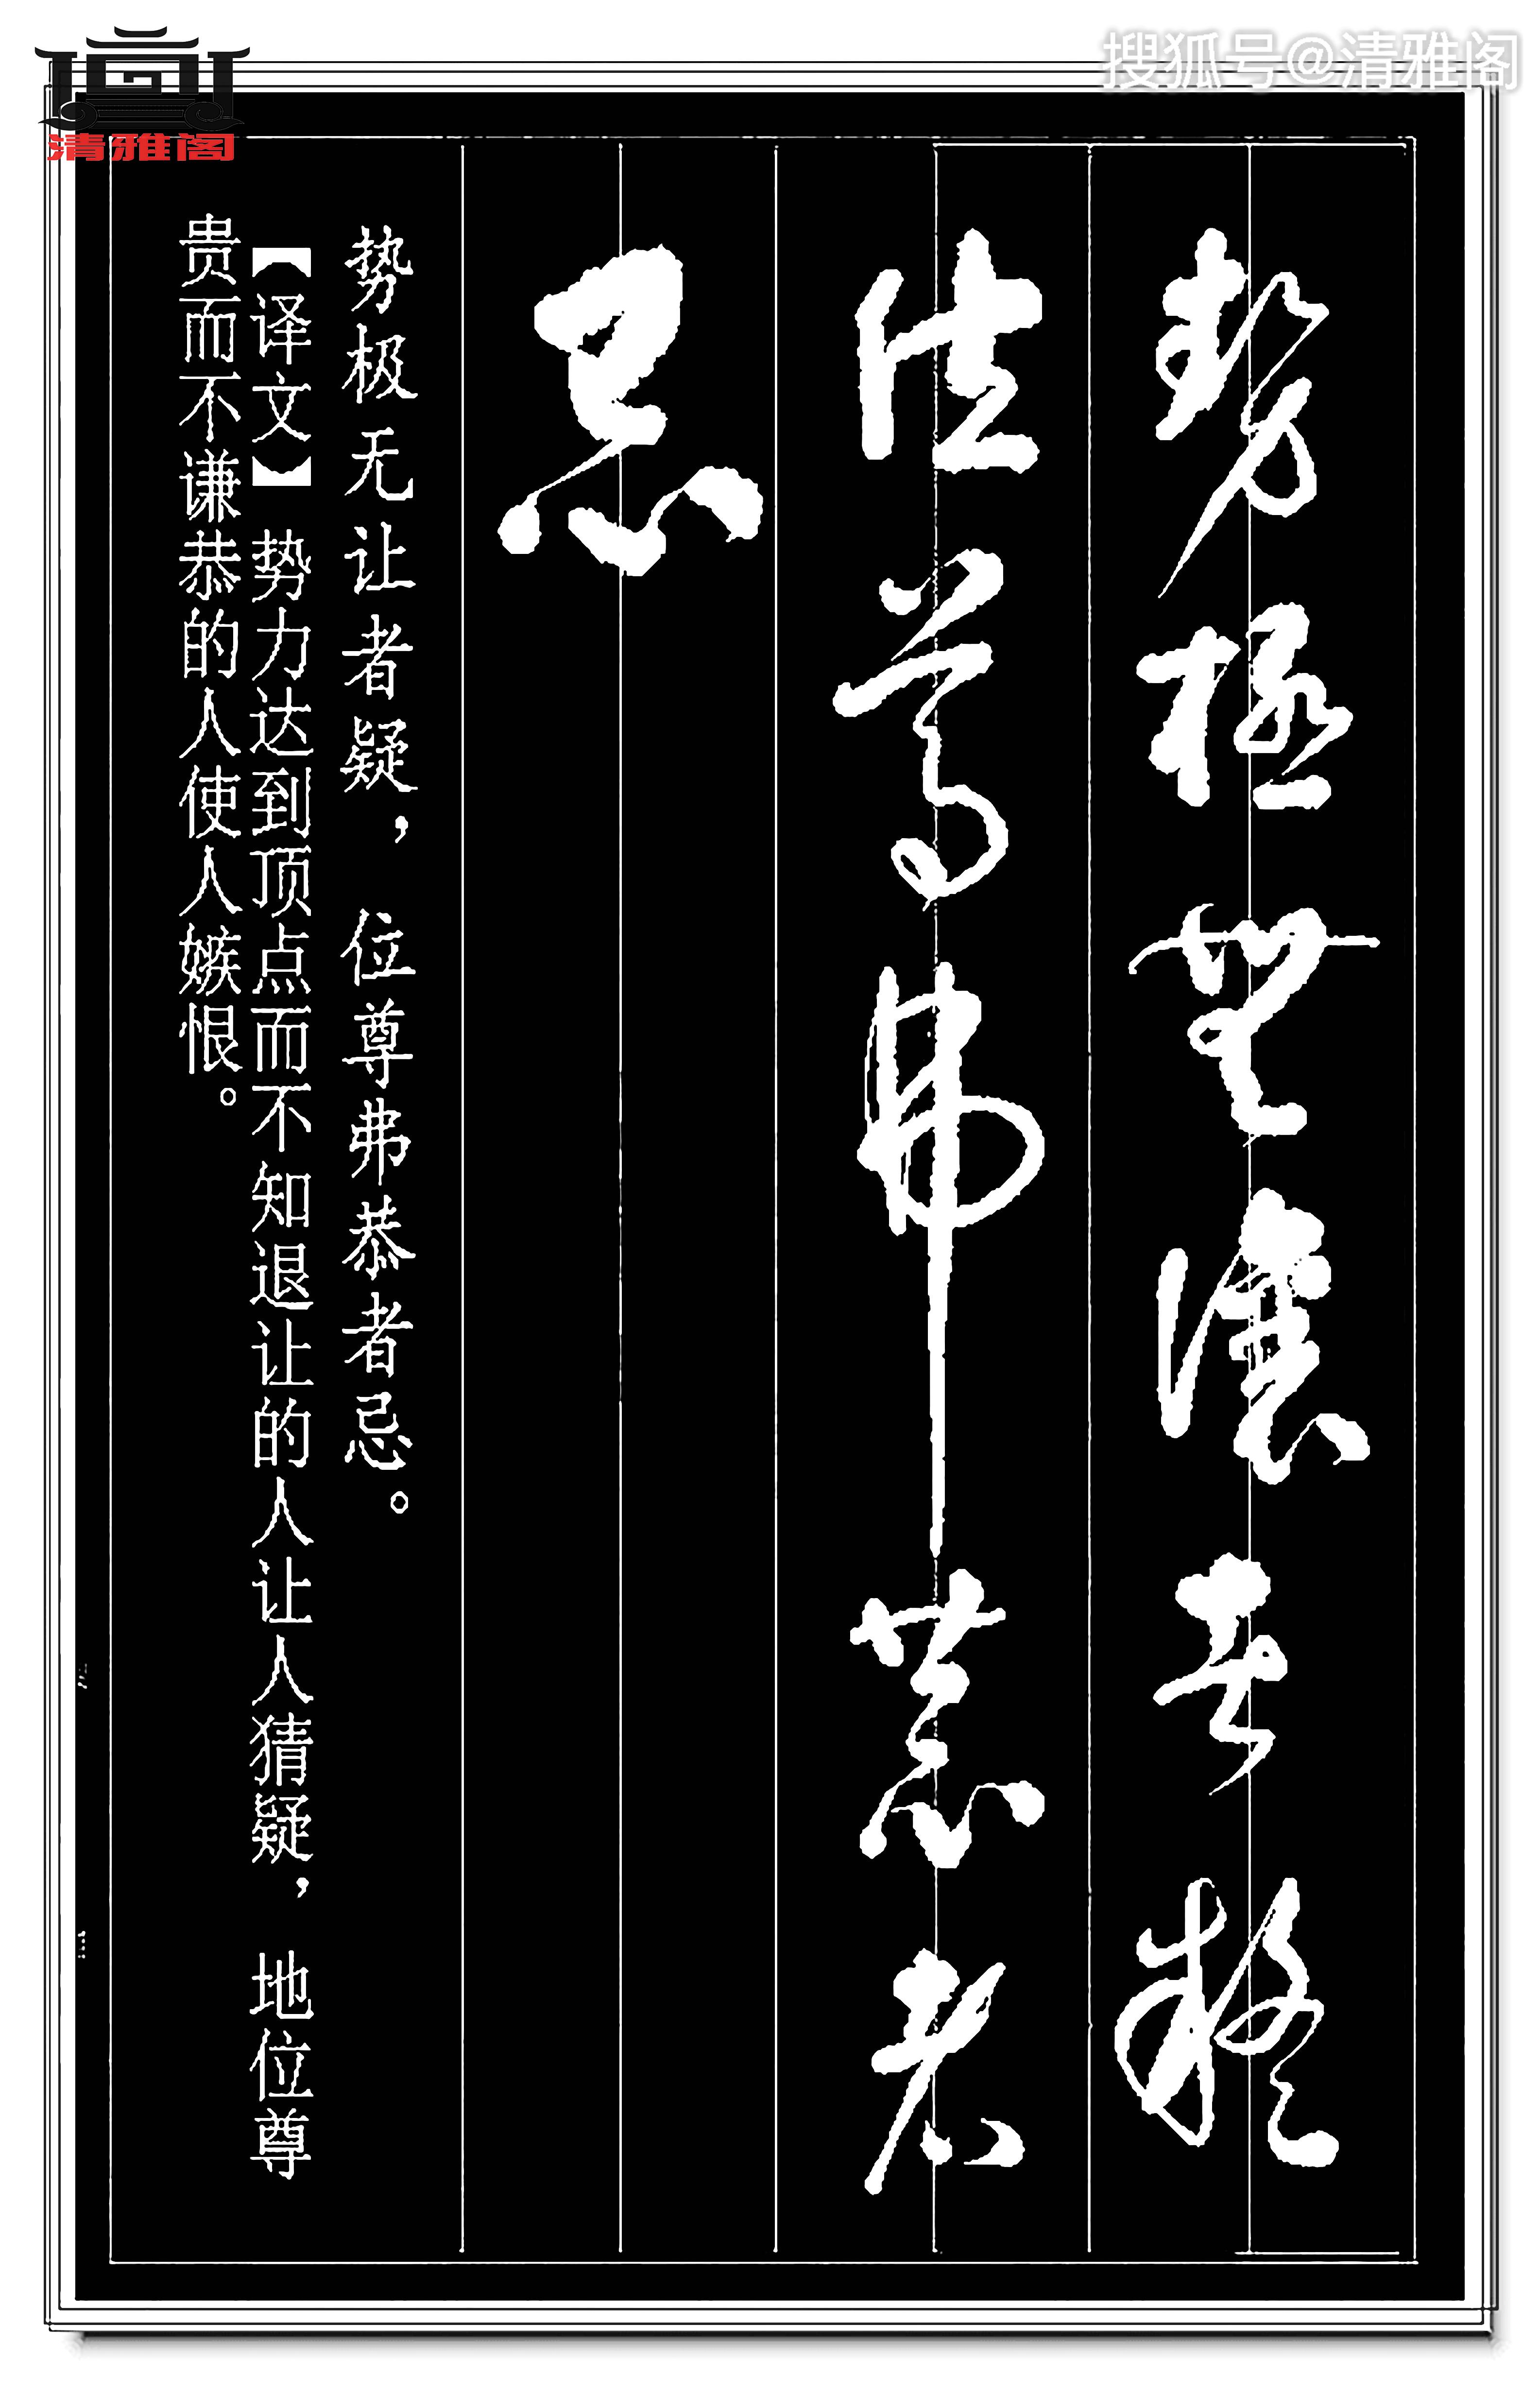 搜狐号@清雅阁
清雅阁
勢極無讓者疑
位尊弗恭者
忌
势极无让者疑，位尊弗恭者忌。
【译文】势力达到顶点而不知退让的人让人猜疑，地位尊
贵而不谦恭的人使人嫉恨。